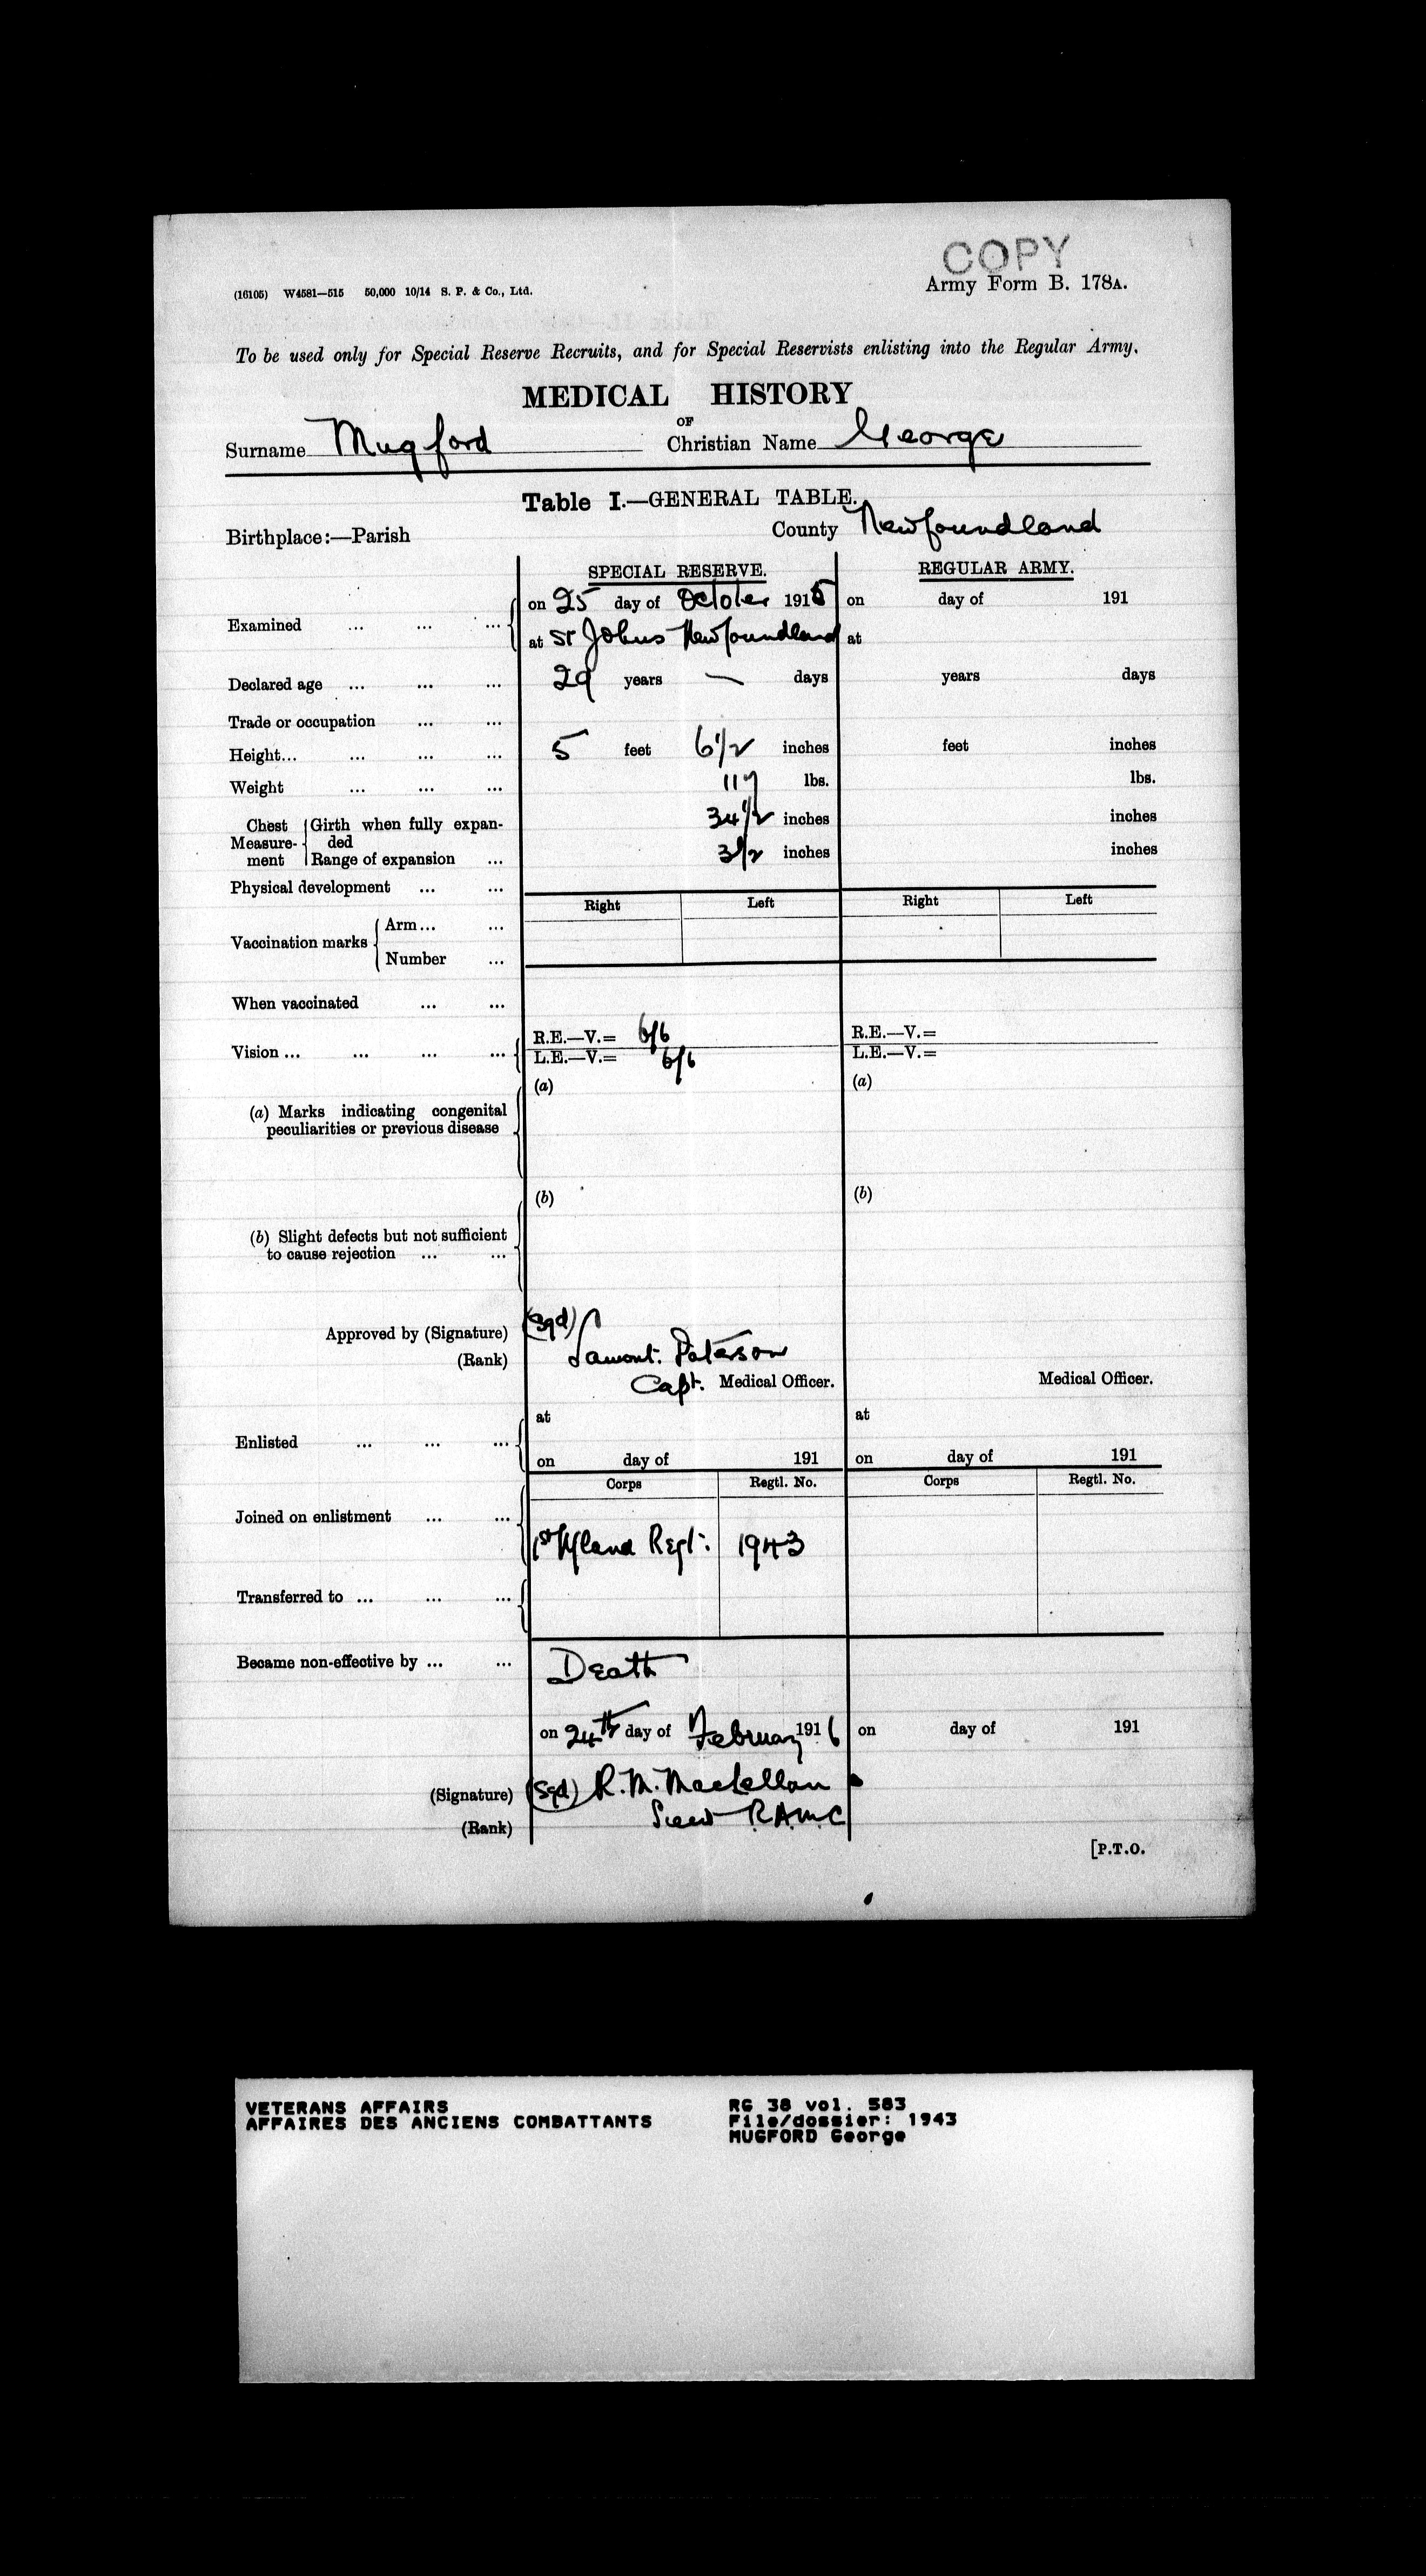 COPY
(16105) W4581—515 50,000 10/14 S. P. & Co., Ltd.
Army Form B. 178A.
To be used only for Special Reserve Recruits, and for Special Reservists enlisting into the Regular Army.
MEDICAL HISTORY
OF
Surname Mugford Christian Name George
Table I.—GENERAL TABLE.
Birthplace:—Parish County Newfoundland
SPECIAL RESERVE. REGULAR ARMY.
on 25 day of October 1915 on day of 191
Examined ... ... ...
at St Johns Newfoundland at
Declared age ... ... ... 29 years — days years days
Trade or occupation ... ...
Height... ... ... ... 5 feet 6 1/2 inches feet inches
Weight ... ... ... 117 lbs. lbs.
Chest Measurement Girth when fully expanded 34 1/2 inches inches
Range of expansion ... 3 1/2 inches inches
Physical development ... ...
Right Left Right Left
Vaccination marks Arm... ...
Number ...
When vaccinated ... ...
Vision ... ... ... ... R.E.—V.= 6/6 R.E.—V.=
L.E.—V.= 6/6 L.E.—V.=
(a) (a)
(a) Marks indicating congenital
peculiarities or previous disease
(b) (b)
(b) Slight defects but not sufficient
to cause rejection ... ...
Approved by (Signature) (Sgd) Lamont. Paterson
(Rank)
Capt. Medical Officer. Medical Officer.
at at
Enlisted ... ... ...
on day of 191 on day of 191
Corps Regtl. No. Corps Regtl. No.
Joined on enlistment ... ...
1st Nfland Regt. 1943
Transferred to ... ... ...
Became non-effective by ... ... Death
on 24th day of February 1916 on day of 191
(Signature) (Sgd) R. M. MacLellan
(Rank) Lieut R.A.M.C
[P.T.O.
VETERANS AFFAIRS RG 38 vol. 583
AFFAIRES DES ANCIENS COMBATTANTS File/dossier: 1943
MUGFORD George